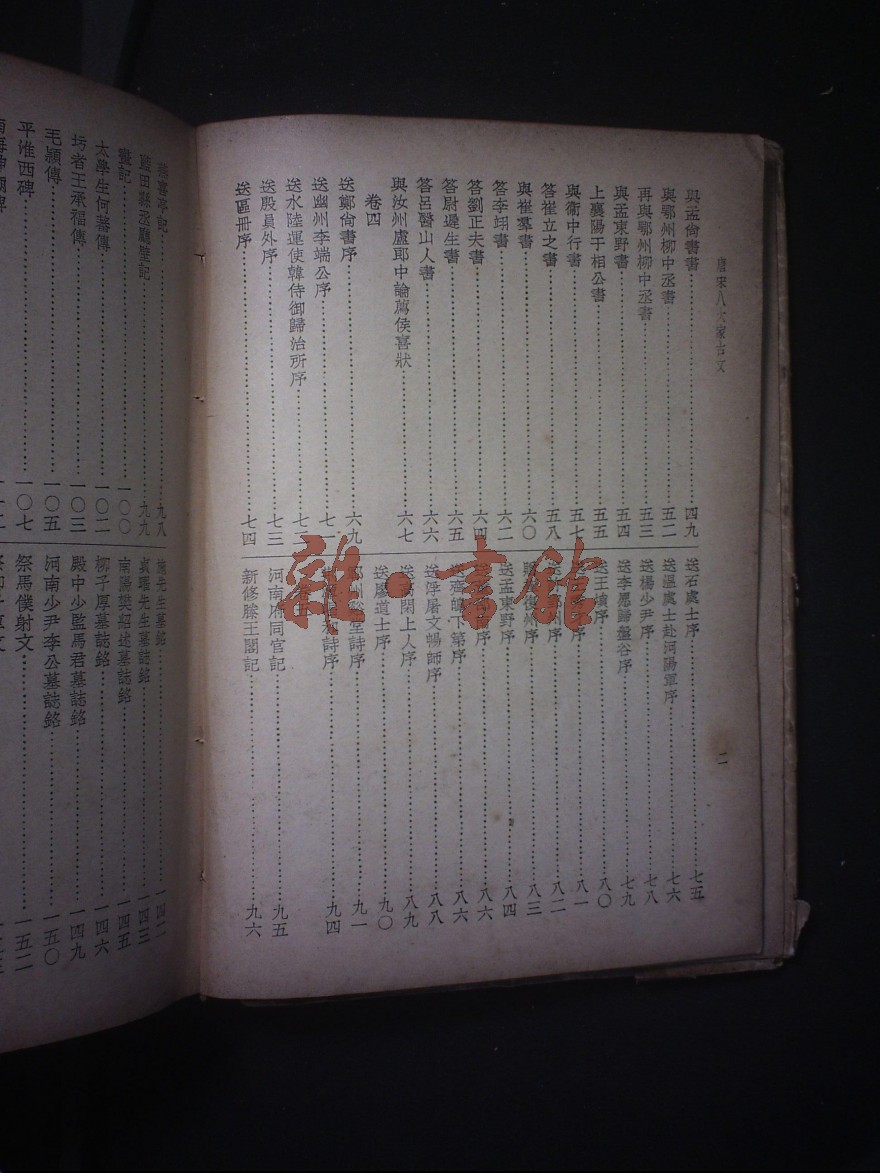 唐宋八大家古文
二
與孟尙書書 四九
與鄂州柳中丞書 五二
再與鄂州柳中丞書 五三
與孟東野書 五四
上襄陽于相公書 五五
與衞中行書 五七
答崔立之書 五八
與崔羣書 六〇
答李翊書 六二
答劉正夫書 六四
答尉遲生書 六五
答呂毉山人書 六六
與汝州盧郎中論薦侯喜狀 六七
卷四
送鄭尙書序 六九
送幽州李端公序 七一
送水陸運使韓侍御歸治所序 七二
送殷員外序 七三
送區冊序 七四
送石處士序 七五
送溫處士赴河陽軍序 七六
送楊少尹序 七八
送李愿歸盤谷序 七九
送王塤序 八〇
序 八一
州序 八二
復州序 八三
送孟東野序 八四
序 八六
送齊皥下第序 八六
送浮屠文暢師序 八八
送高閑上人序 八九
送廖道士序 九〇
鄆州谿堂詩序 九一
詩序 九四
河南府同官記 九五
新修滕王閣記 九六
燕喜亭記 九八
藍田縣丞廳壁記 九九
畫記 一〇〇
太學生何蕃傳 一〇二
圬者王承福傳 一〇三
毛穎傳 一〇五
平淮西碑 一〇七
施先生墓誌銘 一四二
貞曜先生墓誌銘 一四三
南陽樊紹述墓誌銘 一四五
柳子厚墓誌銘 一四六
殿中少監馬君墓誌銘 一四九
河南少尹李公墓誌銘 一五〇
祭馬僕射文 一五二
雜·書館